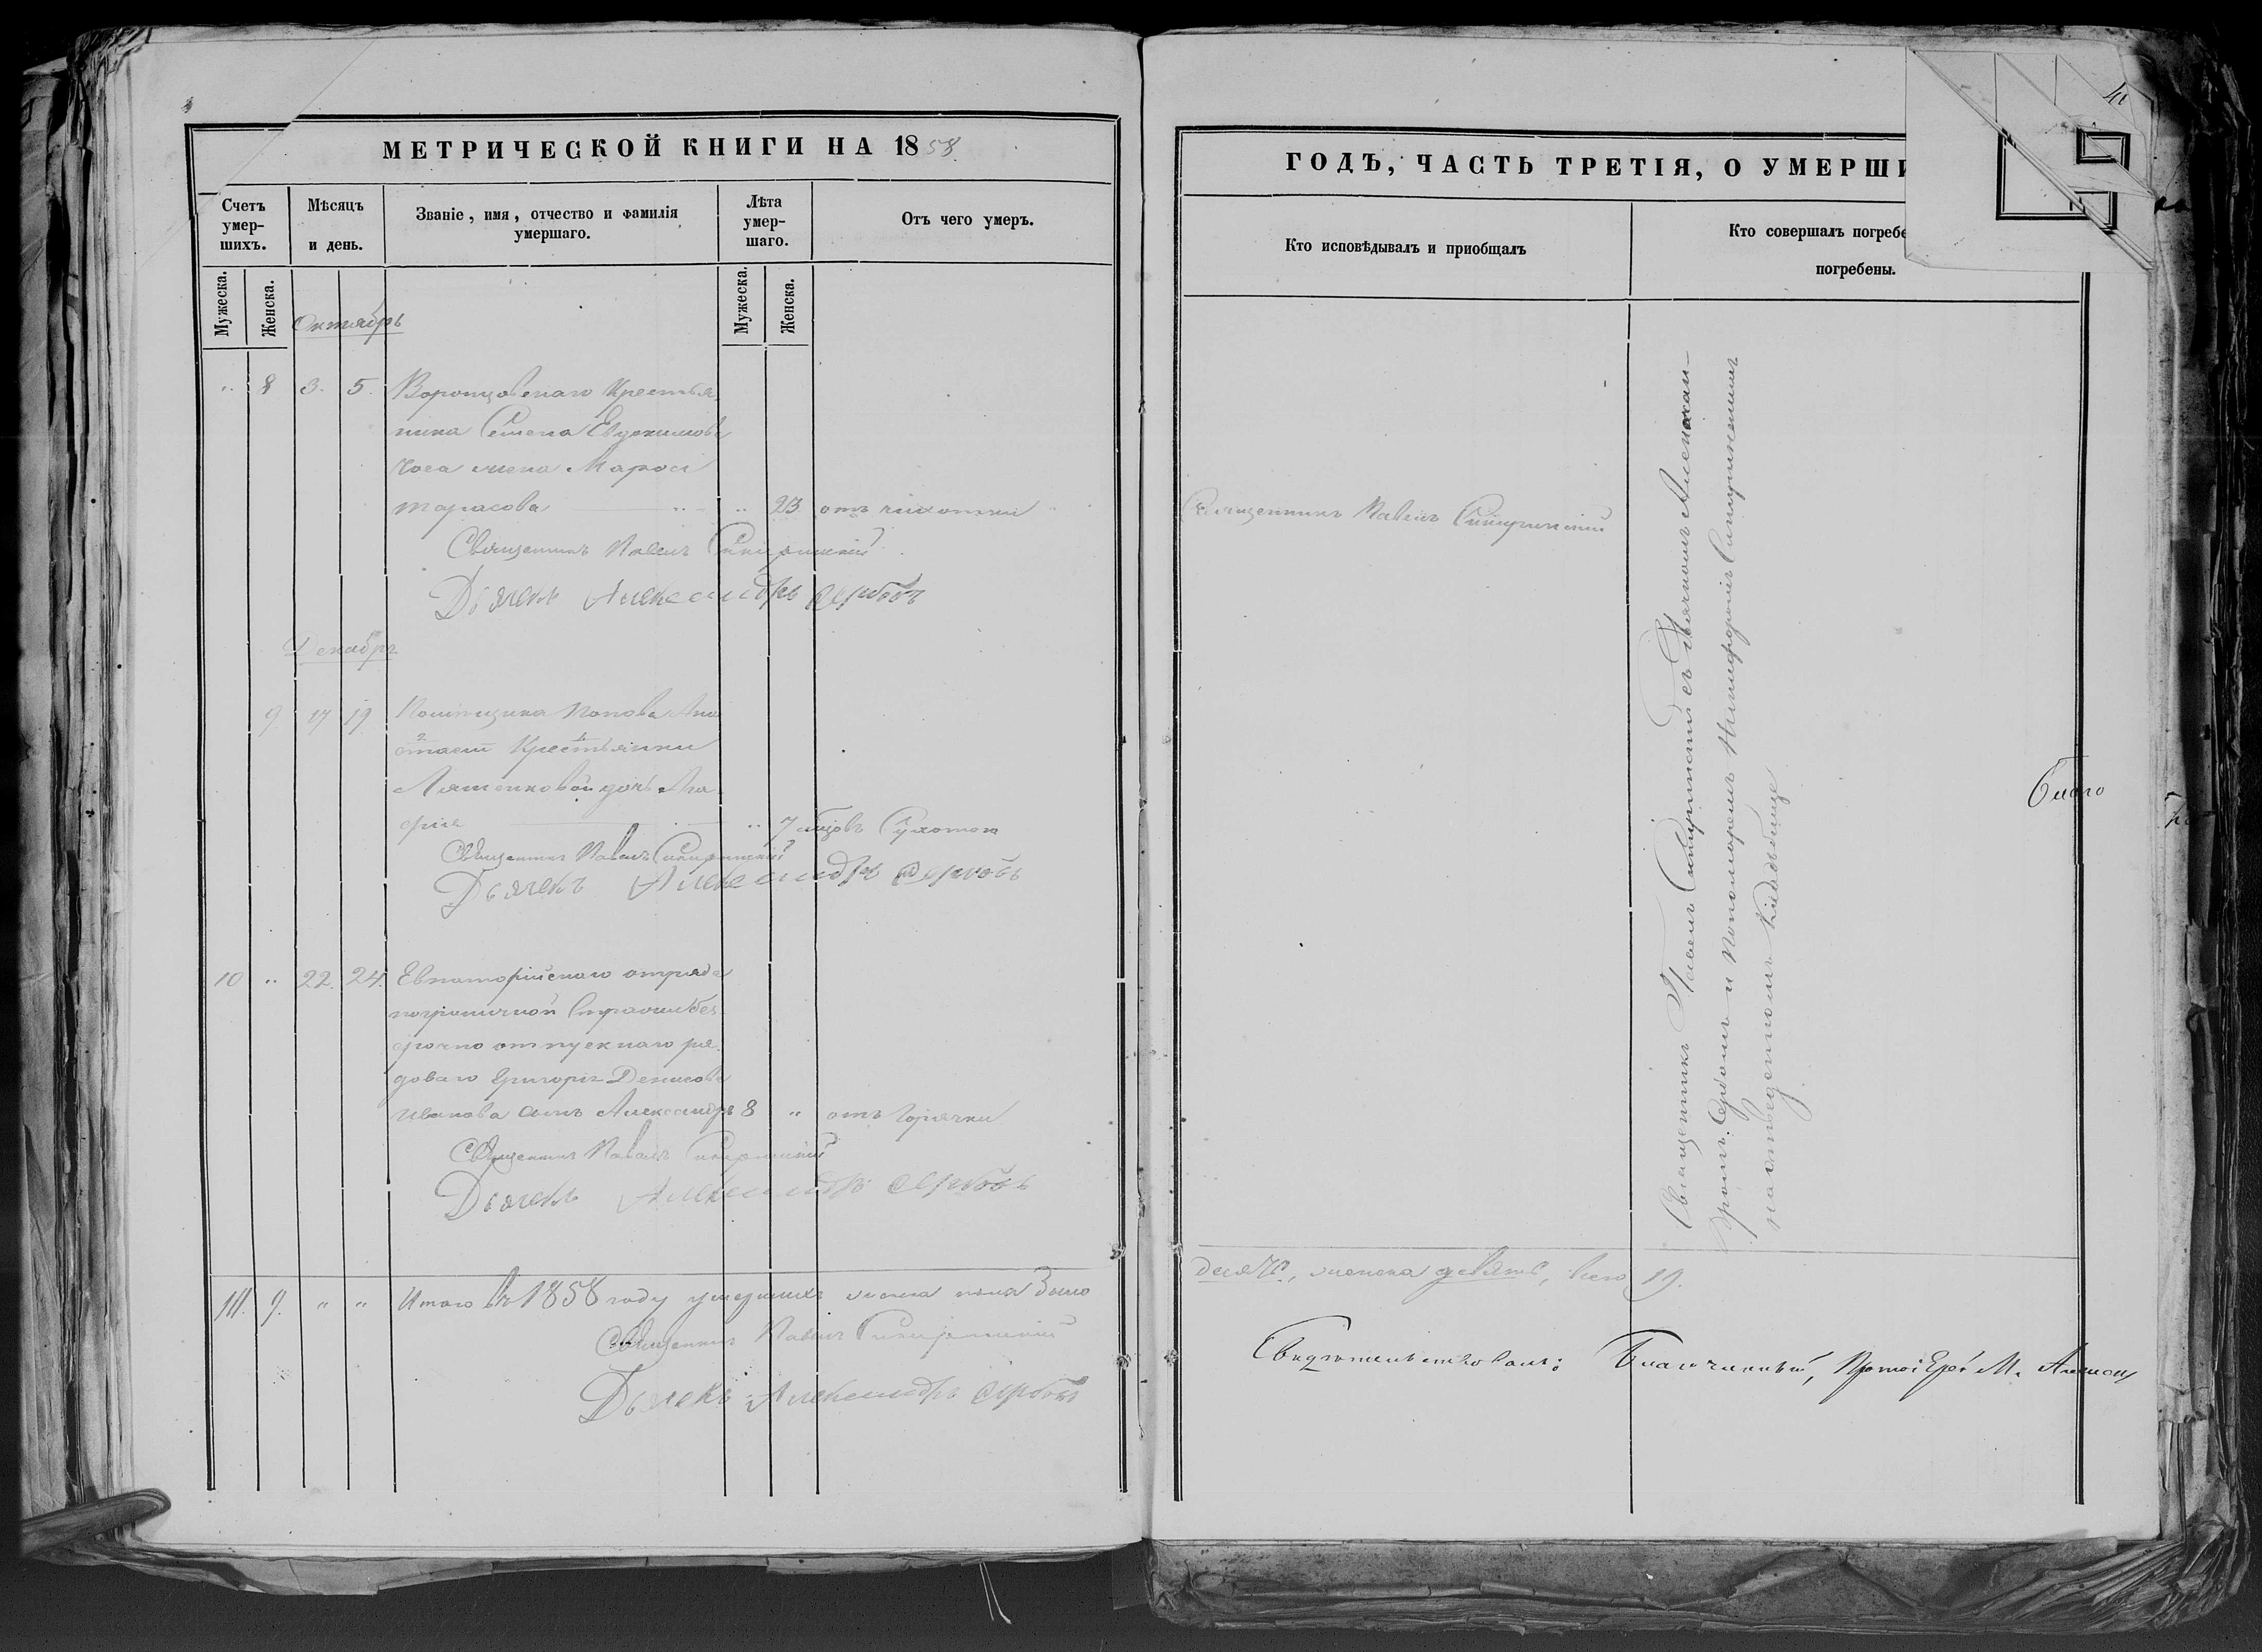 МЕТРИЧЕСКОЙ КНИГИ НА 1858.
Счетъ умер-шихъ.
Мѣсяцъ и день.
Званіе, имя, отчество и фамилія умершаго.
Лѣта умер-шаго.
Отъ чего умеръ.
Мужеска.
Женска.
Мужеска.
Женска.
Октябрь
" 8 3. 5. Воронцовскаго Крестья
нина Семена Евдокимова
жена
Тарасова " 23 отъ чихотки
Священникъ Павелъ
Дьячекъ Александръ Сербовъ
Декабрь
9 17 19 Помѣщика Попова Ана
стасіи Крестьянки
дочь Ма
рія " 7 Сухотою
Священникъ Павелъ
Дьячекъ Александръ Сербовъ
10 " 22. 24. Евпаторійскаго отряда
пограничной Стражи без
срочно отпускнаго ря
доваго Григорія Денисова
Иванова сынъ Александръ 8 " отъ Горячки
Священникъ Павелъ
Дьячекъ Александръ Сербовъ
10. 9. " " Итого въ 1858 году умершихъ пола было
Священникъ Павелъ
Дьячекъ Александръ Сербовъ
ГОДЪ, ЧАСТЬ ТРЕТІЯ, О УМЕРШИ
Кто исповѣдывалъ и пріобщалъ
Кто совершалъ погребе
погребены.
Священникъ Павелъ
Священникъ Павелъ съ Дьячкомъ Александ-
ромъ Сербовымъ и Пономаремъ
на отведенномъ кладбище
десять, женска девять, всего 19.
Свидѣтельствовалъ: Благочинный, Протоіерей М.